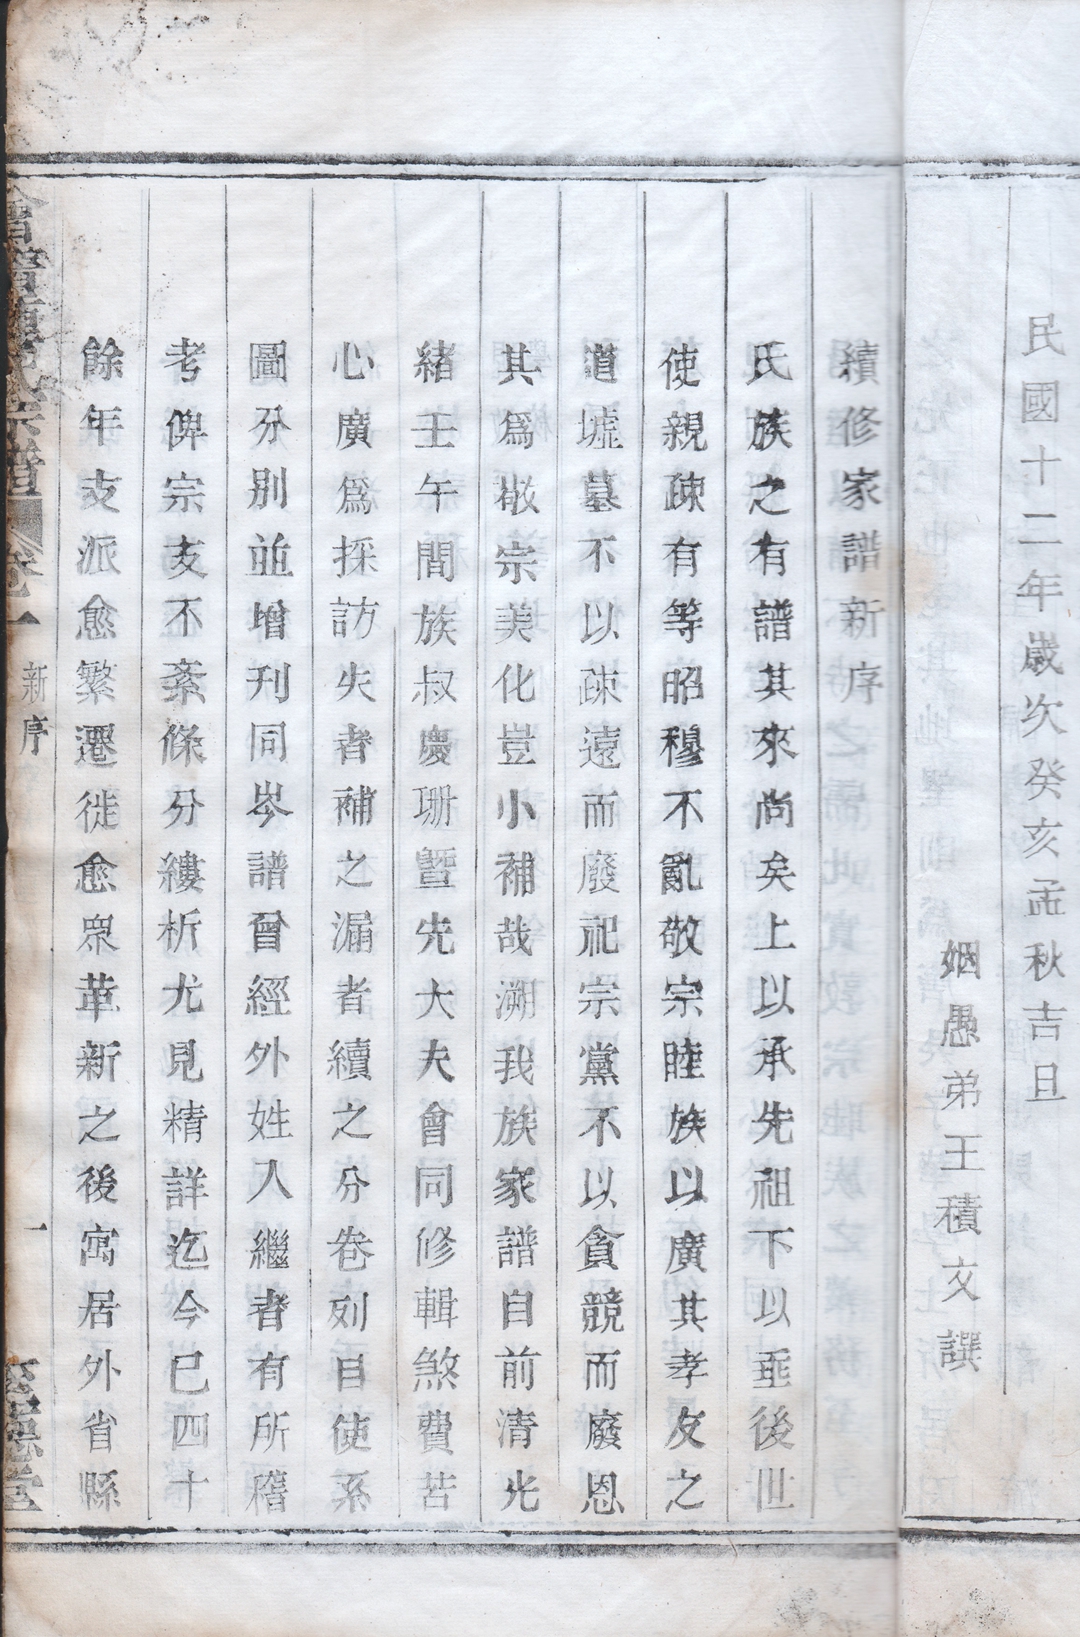 民國十二年歲次癸亥孟秋吉旦
姻愚弟王積文譔
續修家譜新序
氏族之有譜其來尚矣上以承先祖下以垂後世
使親疎有等昭穆不亂敬宗睦族以廣其孝友之
道墟墓不以疎遠而廢祀宗黨不以貪競而廢恩
其爲敬宗美化豈小補哉溯我族家譜自前清光
緒壬午間族叔慶珊曁先大夫會同修輯煞費苦
心廣爲採訪失者補之漏者續之分卷列目使系
圖分別並增刊同岑譜曾經外姓入繼者有所稽
考俾宗支不紊條分縷析尤見精詳迄今已四十
餘年支派愈繁遷徙愈衆革新之後寓居外省縣
會稽陳氏宗譜 卷一 新序 一 至德堂